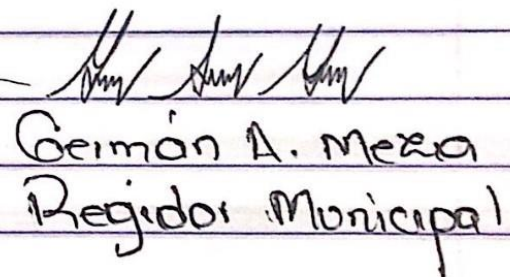 Germán A. Mexia
Regidor Municipal